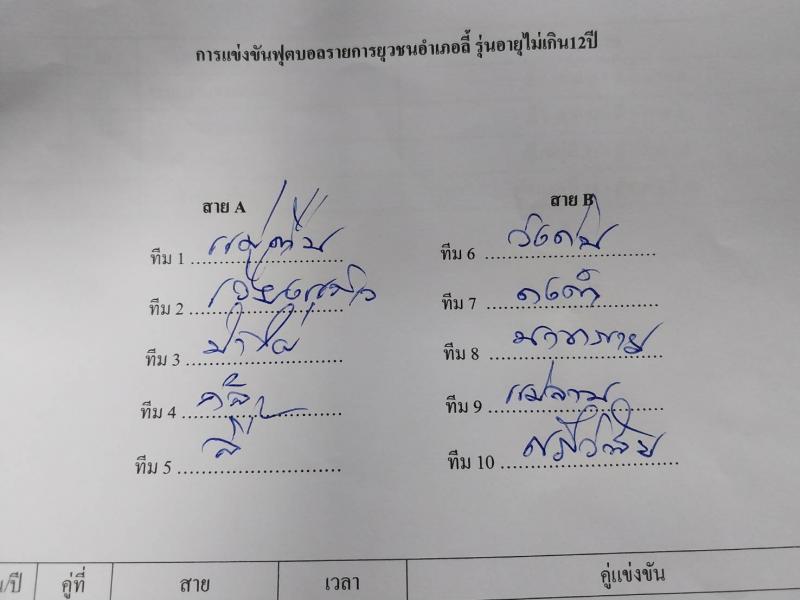 การแข่งขันฟุตบอลรายการยุวชนอำเภอลี้ รุ่นอายุไม่เกิน12ปี
สาย A
สาย B
ทีม 1 แม่ตืน
ทีม 6 วังดิน
ทีม 2 เวียงแก้ว
ทีม 7 ดงดำ
ทีม 3 ป่าไผ่
ทีม 8 นาทราย
ทีม 4
ทีม 9 แม่ลาน
ทีม 5 ลี้
ทีม 10 ศรีวิชัย
น/ปี คู่ที่ สาย เวลา คู่แข่งขัน